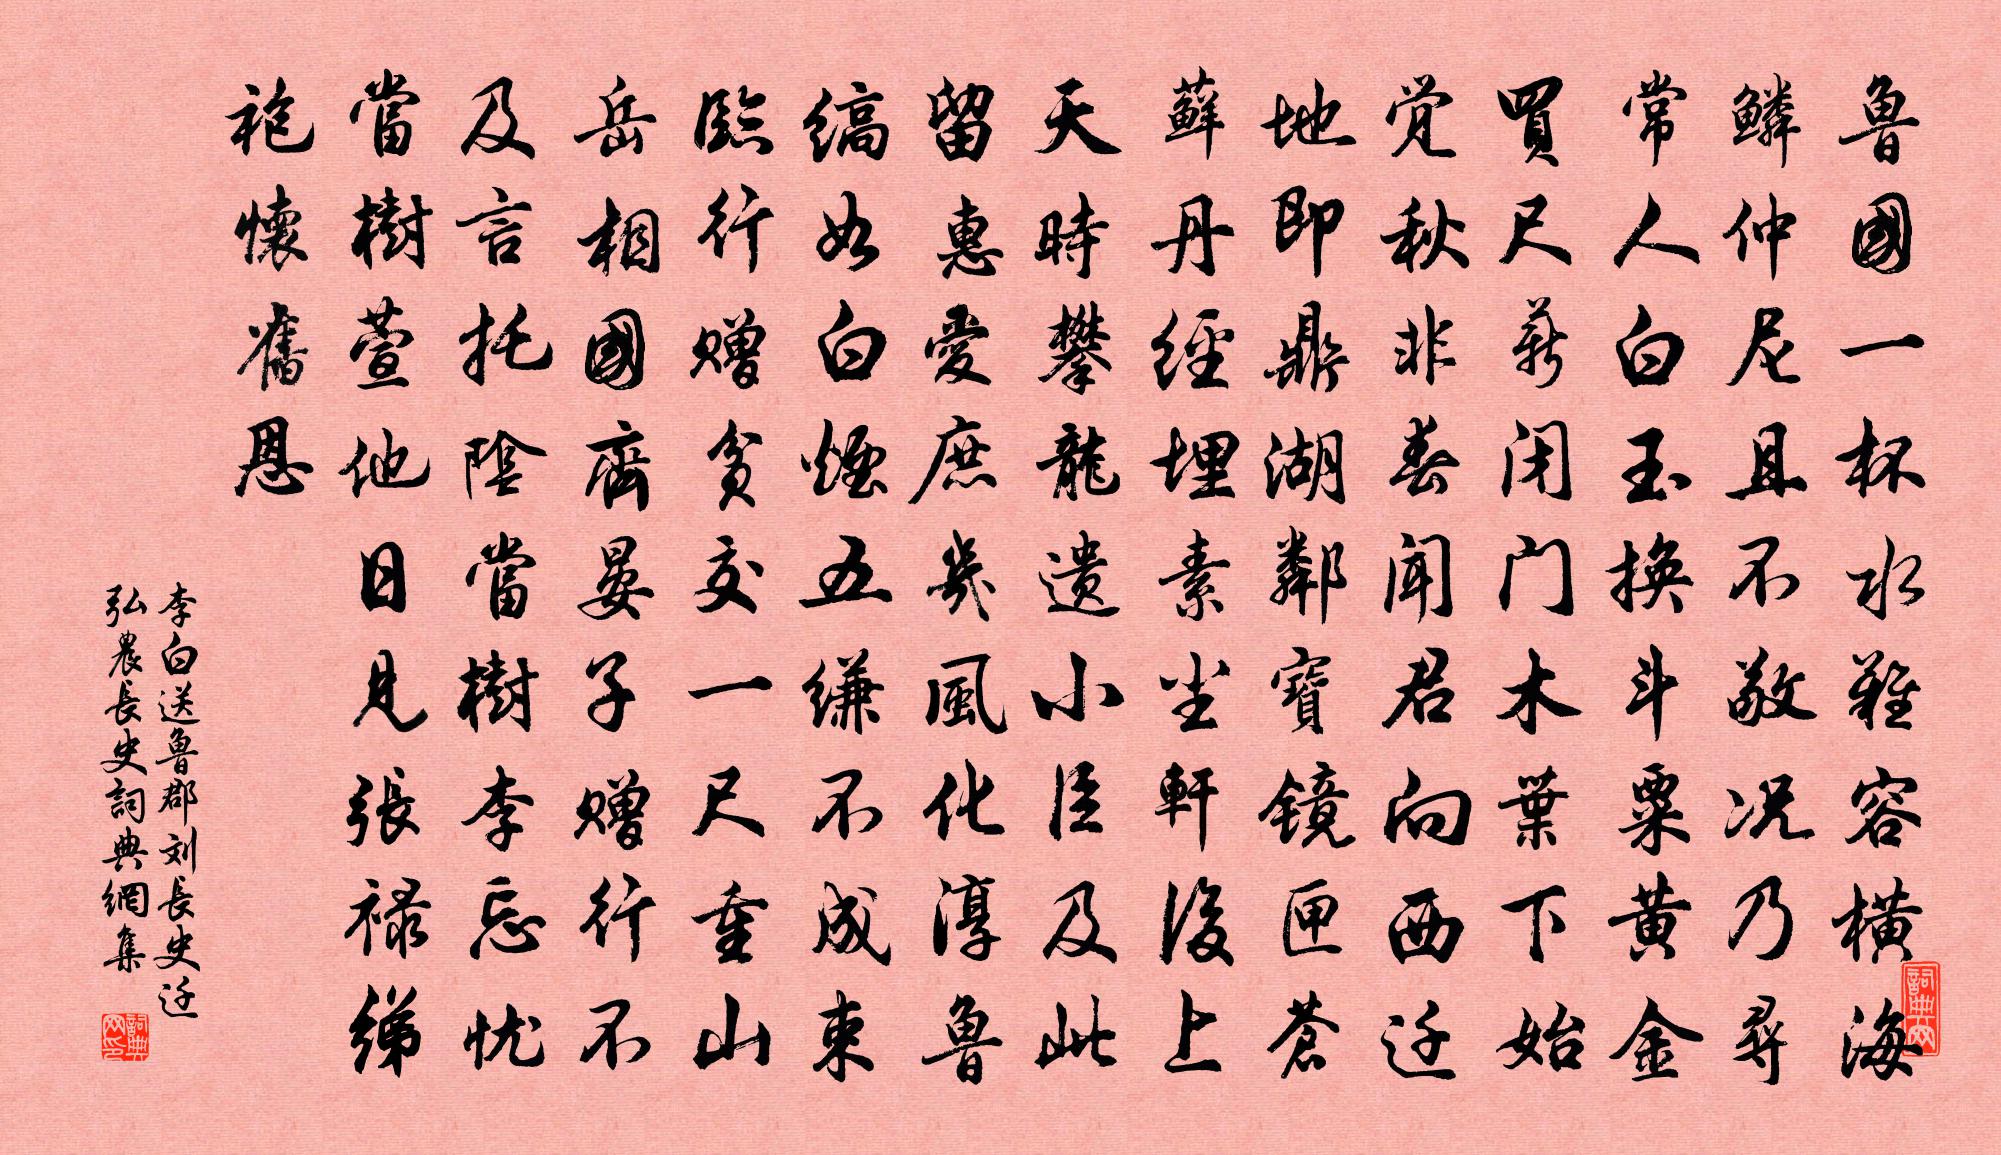 魯國一杯水難容橫海
鱗仲尼且不敬况乃尋
常人白玉換斗粟黃金
買尺薪闭门木葉下始
觉秋非春闻君向西迁
地即鼎湖鄰寶鏡匣蒼
蘚丹經埋素尘軒後上
天時攀龍遺小臣及此
留惠愛庶幾風化淳魯
縞如白煙五縑不成束
臨行贈貧交一尺重山
岳相國齊晏子贈行不
及言托陰當樹李忘忧
當樹萱他日見張禄綈
袍懷舊恩
李白送魯郡刘長史迁
弘農長史詞典網集
詞典网
詞典网印